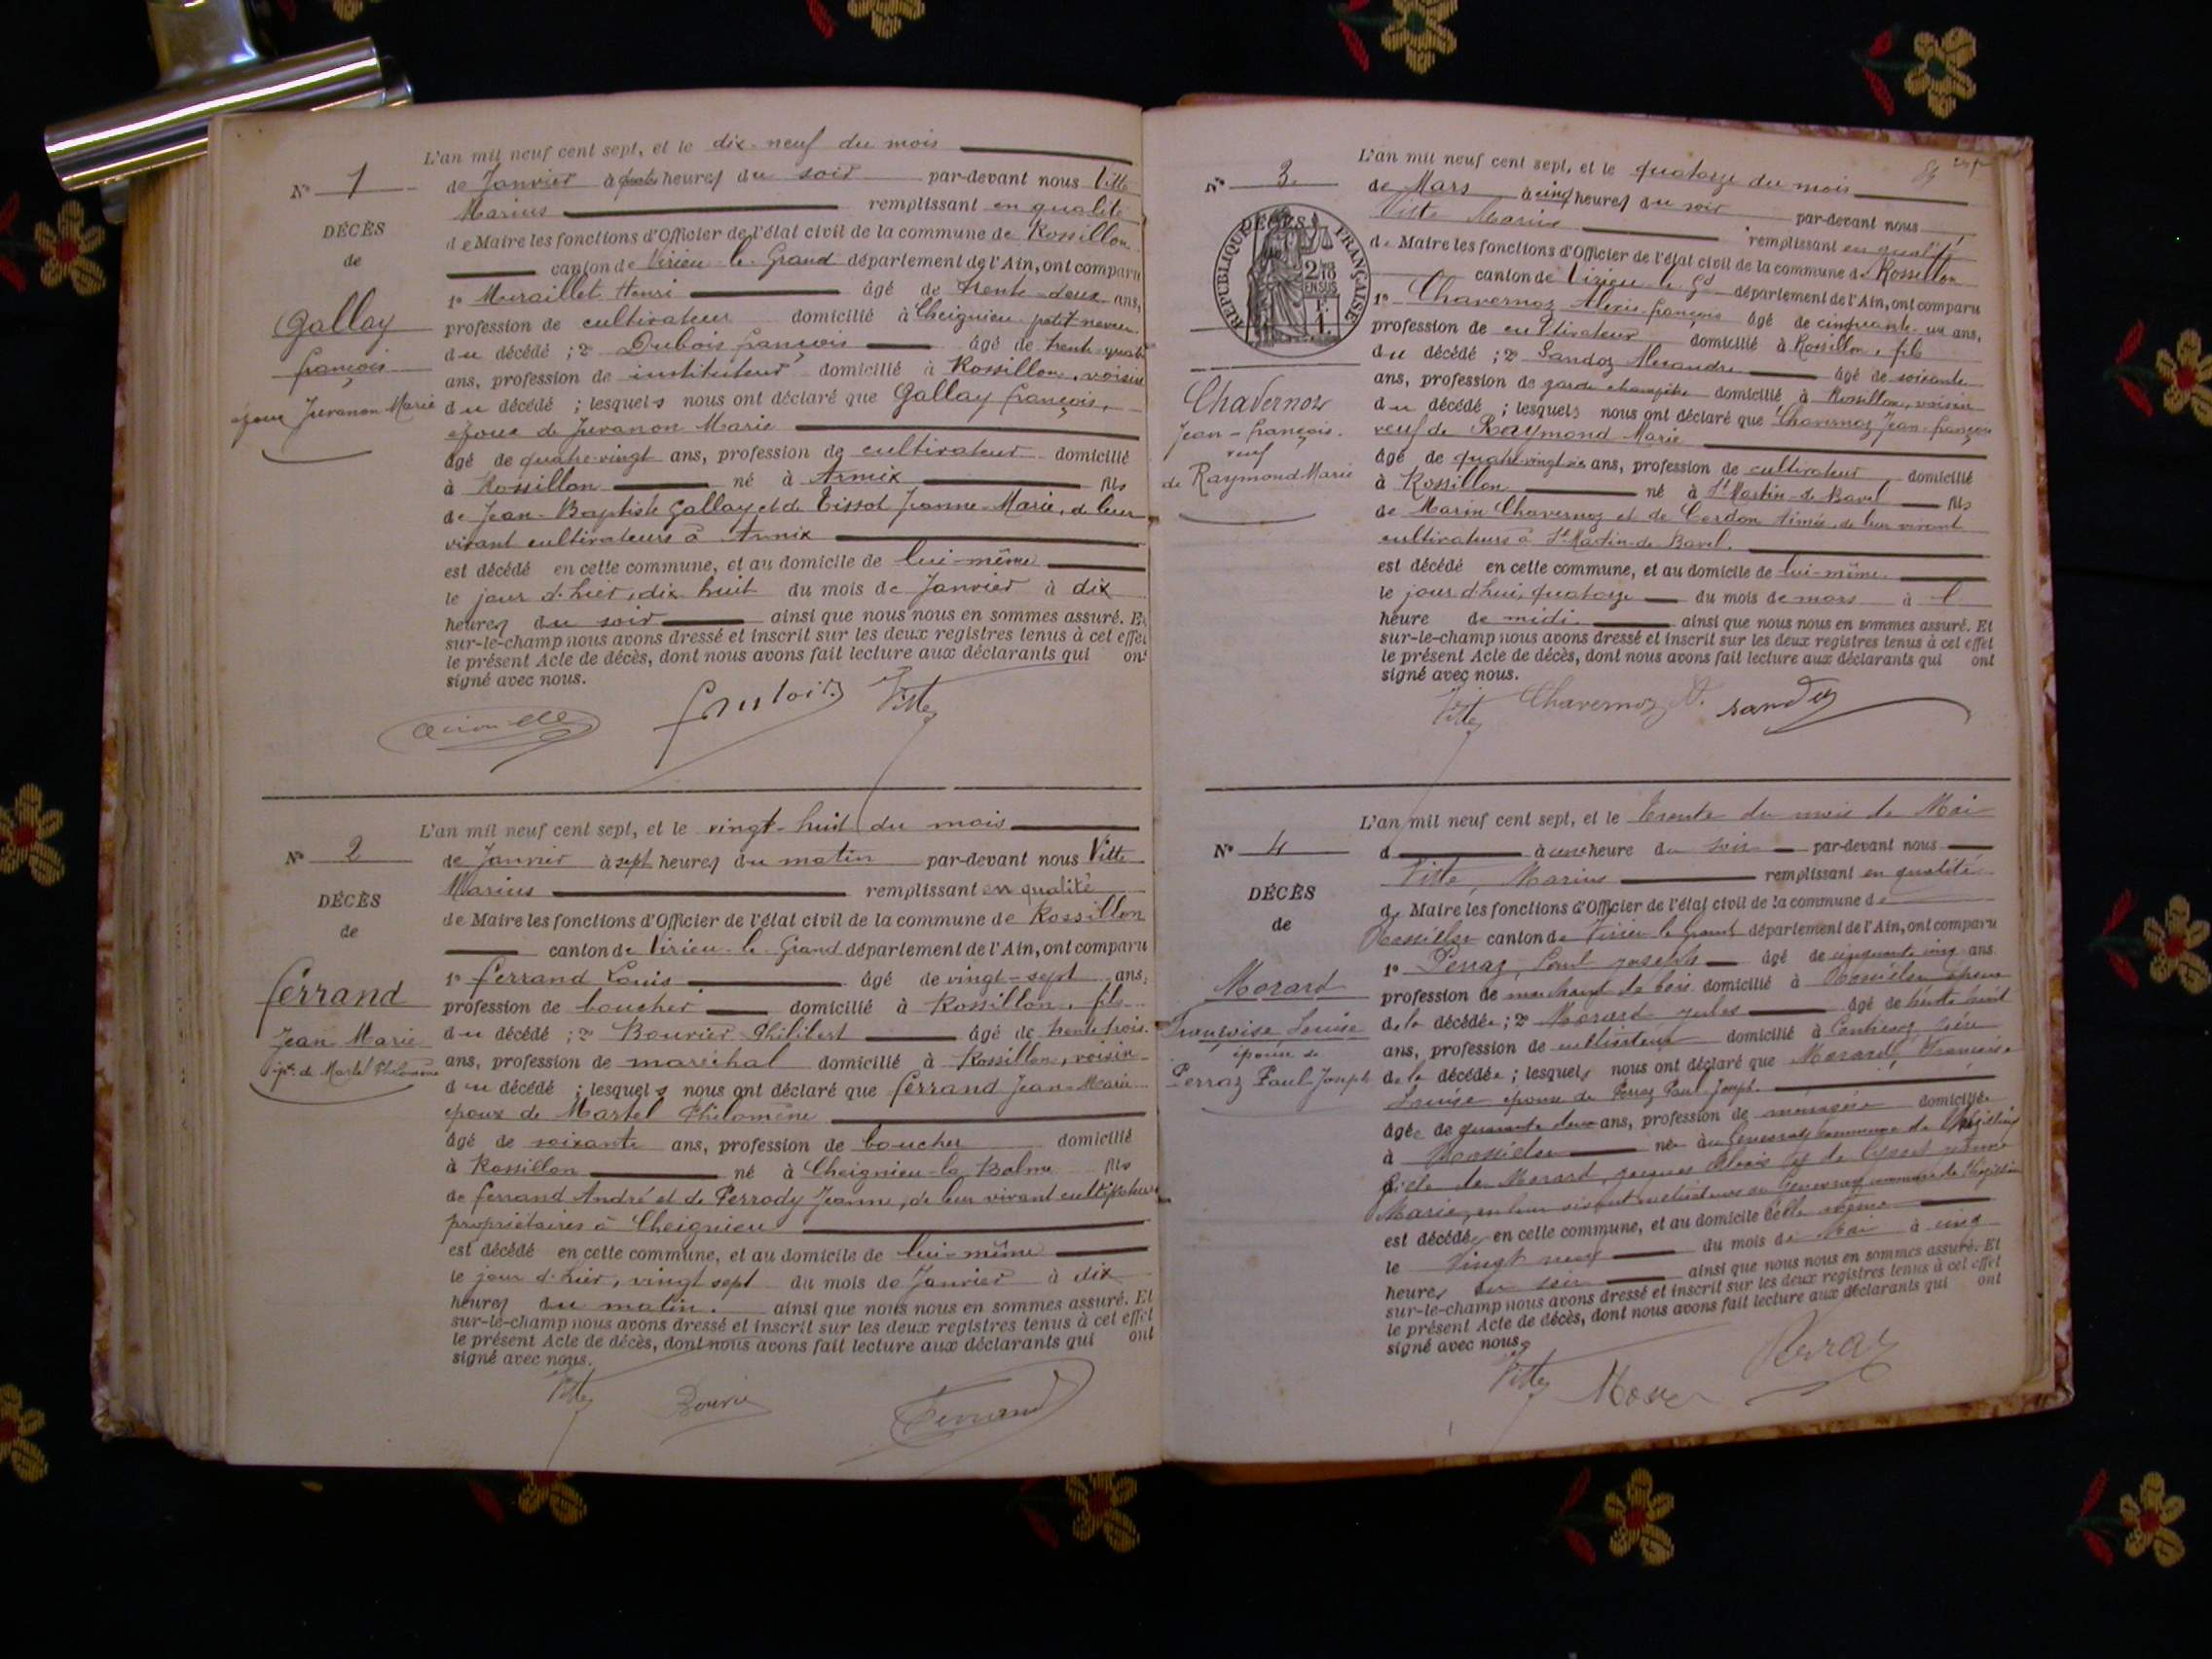 L'an mil neuf cent sept, et le dix-neuf du mois
N° 1
de Janvier à quatre heures du soir par-devant nous Vitte
Marius remplissant en qualité
DÉCÈS
de Maire les fonctions d'Officier de l'état civil de la commune de Rossillon
de
canton de Virieu-le-Grand département de l'Ain, ont comparu
1° Henri âgé de trente-deux ans,
Gallay
profession de cultivateur domicilié à Cheignieu petit neveu
du décédé ; 2° Dubois françois âgé de trente-quatre
françois
ans, profession de instituteur domicilié à Rossillon, voisin
époux Juvanon Marie
du décédé ; lesquels nous ont déclaré que Gallay françois,
époux de Juvanon Marie
âgé de quatre-vingt ans, profession de cultivateur domicilié
à Rossillon né à Armix fils
de Jean-Baptiste Gallay et de Tissot Jeanne-Marie, de leur
vivant cultivateurs à Armix
est décédé en cette commune, et au domicile de lui-même
le jour d'hier, dix huit du mois de Janvier à dix
heures du soir ainsi que nous nous en sommes assuré. Et
sur-le-champ nous avons dressé et inscrit sur les deux registres tenus à cet effet
le présent Acte de décès, dont nous avons fait lecture aux déclarants qui ont
signé avec nous.
Vitte
L'an mil neuf cent sept, et le vingt-huit du mois
N° 2
de Janvier à sept heures du matin par-devant nous Vitte
Marius remplissant en qualité
DÉCÈS
de Maire les fonctions d'Officier de l'état civil de la commune de Rossillon
de
canton de Virieu-le-Grand département de l'Ain, ont comparu
1° ferrand Louis âgé de vingt-sept ans,
ferrand
profession de boucher domicilié à Rossillon, fils
du décédé ; 2° Bouvier Philibert âgé de trente trois
Jean Marie
ans, profession de maréchal domicilié à Rossillon, voisin
de Martel Philomène
du décédé ; lesquels nous ont déclaré que ferrand Jean-Marie
époux de Martel Philomène
âgé de soixante ans, profession de boucher domicilié
à Rossillon né à Cheignieu-la-Balme fils
de ferrand André et de Perrody Jeanne, de leur vivant cultivateurs
propriétaires à Cheignieu
est décédé en cette commune, et au domicile de lui-même
le jour d'hier, vingt sept du mois de Janvier à dix
heures du matin. ainsi que nous nous en sommes assuré. Et
sur-le-champ nous avons dressé et inscrit sur les deux registres tenus à cet effet
le présent Acte de décès, dont nous avons fait lecture aux déclarants qui ont
signé avec nous.
Vitte Ferrand
L'an mil neuf cent sept, et le quatorze du mois
N° 3
de Mars à cinq heures du soir par-devant nous
Vitte Marius remplissant en qualité
DÉCÈS
RÉPUBLIQUE FRANÇAISE
2/10 EN SUS
de Maire les fonctions d'Officier de l'état civil de la commune de Rossillon
canton de Virieu-le-Gd département de l'Ain, ont comparu
1° Chavernoz Alexis françois âgé de cinquante-un ans,
profession de cultivateur domicilié à Rossillon, fils
du décédé ; 2° Sandoz Alexandre âgé de soixante
ans, profession de garde champêtre domicilié à Rossillon, voisin
Chavernoz
du décédé ; lesquels nous ont déclaré que Chavernoz Jean-françois
Jean-françois.
veuf de Raymond Marie
veuf
âgé de quatre-vingt-six ans, profession de cultivateur domicilié
de Raymond Marie
à Rossillon né à St Martin-de-Bavel fils
de Marin Chavernoz et de Cordon Aimée, de leur vivant
cultivateurs à St Martin-de-Bavel.
est décédé en cette commune, et au domicile de lui-même.
le jour d'hui, quatorze du mois de mars à l
heure de midi. ainsi que nous nous en sommes assuré. Et
sur-le-champ nous avons dressé et inscrit sur les deux registres tenus à cet effet
le présent Acte de décès, dont nous avons fait lecture aux déclarants qui ont
signé avec nous.
Vitte Chavernoz A. Sandoz
L'an mil neuf cent sept, et le trente du mois de Mai
N° 4
d à une heure du soir par-devant nous
Vitte, Marius remplissant en qualité
DÉCÈS
de Maire les fonctions d'Officier de l'état civil de la commune de
de
Rossillon canton de Virieu le Grand département de l'Ain, ont comparu
1° Perraz, Paul Joseph âgé de cinquante cinq ans
Morard
profession de marchand de bois domicilié à Rossillon époux
de la décédée ; 2° Morard Jules âgé de trente huit
Françoise Louise
ans, profession de cultivateur domicilié à frère
épouse de
de la décédée ; lesquels nous ont déclaré que Morard Françoise
Perraz Paul-Joseph
Louise épouse de Perraz Paul-Joseph.
âgée de quarante deux ans, profession de ménagère domiciliée
à Rossillon née commune de
fille de Morard, et de
Marie, en leur vivant cultivateurs commune de
est décédée en cette commune, et au domicile d'elle même
le Vingt neuf du mois de Mai à cinq
heures du soir ainsi que nous nous en sommes assuré. Et
sur-le-champ nous avons dressé et inscrit sur les deux registres tenus à cet effet
le présent Acte de décès, dont nous avons fait lecture aux déclarants qui ont
signé avec nous.
Vitte Perraz